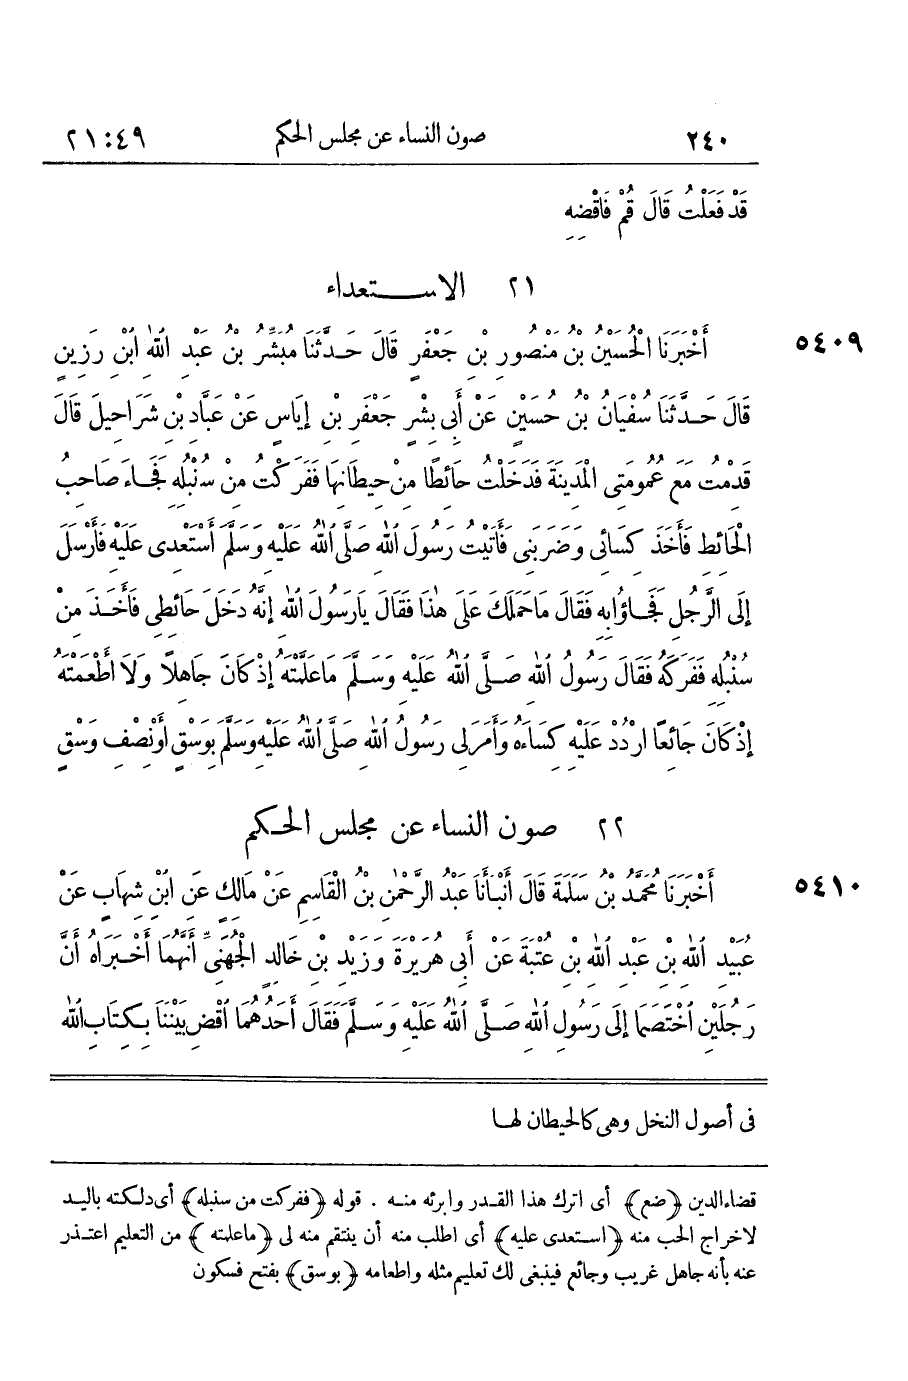 ٢٤٠ صون النساء عن مجلس الحكم ٢١:٤٩
قَدْ فَعَلْتُ قَالَ قُمْ فَاقْضِهِ
٢١ الاستعداء
٥٤٠٩ أَخْبَرَنَا الْحُسَيْنُ بْنُ مَنْصُورِ بْنِ جَعْفَرٍ قَالَ حَدَّثَنَا مُبَشِّرُ بْنُ عَبْدِ اللهِ ابْنِ رَزِينٍ
قَالَ حَدَّثَنَا سُفْيَانُ بْنُ حُسَيْنٍ عَنْ أَبِى بِشْرٍ جَعْفَرِ بْنِ إِيَاسٍ عَنْ عَبَّادِ بْنِ شَرَاحِيلَ قَالَ
قَدِمْتُ مَعَ عُمُومَتِى الْمَدِينَةَ فَدَخَلْتُ حَائِطًا مِنْ حِيطَانِهَا فَفَرَكْتُ مِنْ سُنْبُلِهِ فَجَاءَ صَاحِبُ
الْحَائِطِ فَأَخَذَ كِسَائِى وَضَرَبَنِى فَأَتَيْتُ رَسُولَ اللهِ صَلَّى اللهُ عَلَيْهِ وَسَلَّمَ أَسْتَعْدِى عَلَيْهِ فَأَرْسَلَ
إِلَى الرَّجُلِ فَجَاؤُا بِهِ فَقَالَ مَا حَمَلَكَ عَلَى هٰذَا فَقَالَ يَارَسُولَ اللهِ إِنَّهُ دَخَلَ حَائِطِى فَأَخَذَ مِنْ
سُنْبُلِهِ فَفَرَكَهُ فَقَالَ رَسُولُ اللهِ صَلَّى اللهُ عَلَيْهِ وَسَلَّمَ مَاعَلَّمْتَهُ إِذْ كَانَ جَاهِلًا وَلَا أَطْعَمْتَهُ
إِذْ كَانَ جَائِعًا ارْدُدْ عَلَيْهِ كِسَاءَهُ وَأَمَرَ لِى رَسُولُ اللهِ صَلَّى اللهُ عَلَيْهِ وَسَلَّمَ بِوَسْقٍ أَوْ نِصْفِ وَسْقٍ
٢٢ صون النساء عن مجلس الحكم
٥٤١٠ أَخْبَرَنَا مُحَمَّدُ بْنُ سَلَمَةَ قَالَ أَنْبَأَنَا عَبْدُ الرَّحْمٰنِ بْنُ الْقَاسِمِ عَنْ مَالِكٍ عَنِ ابْنِ شِهَابٍ عَنْ
عُبَيْدِ اللهِ بْنِ عَبْدِ اللهِ بْنِ عُتْبَةَ عَنْ أَبِى هُرَيْرَةَ وَزَيْدِ بْنِ خَالِدٍ الْجُهَنِىِّ أَنَّهُمَا أَخْبَرَاهُ أَنَّ
رَجُلَيْنِ اخْتَصَمَا إِلَى رَسُولِ اللهِ صَلَّى اللهُ عَلَيْهِ وَسَلَّمَ فَقَالَ أَحَدُهُمَا اقْضِ بَيْنَنَا بِكِتَابِ اللهِ
فى أصول النخل وهى كالحيطان لها
قضاء الدين ﴿ضع﴾ أى اترك هذا القدر وابرئه منه . قوله ﴿ففركت من سنبله﴾ أى دلكته باليد
لاخراج الحب منه ﴿استعدى عليه﴾ أى اطلب منه أن ينتقم منه لى ﴿ماعلمته﴾ من التعليم اعتذر
عنه بأنه جاهل غريب وجائع فينبغى لك تعليم مثله واطعامه ﴿بوسق﴾ بفتح فسكون